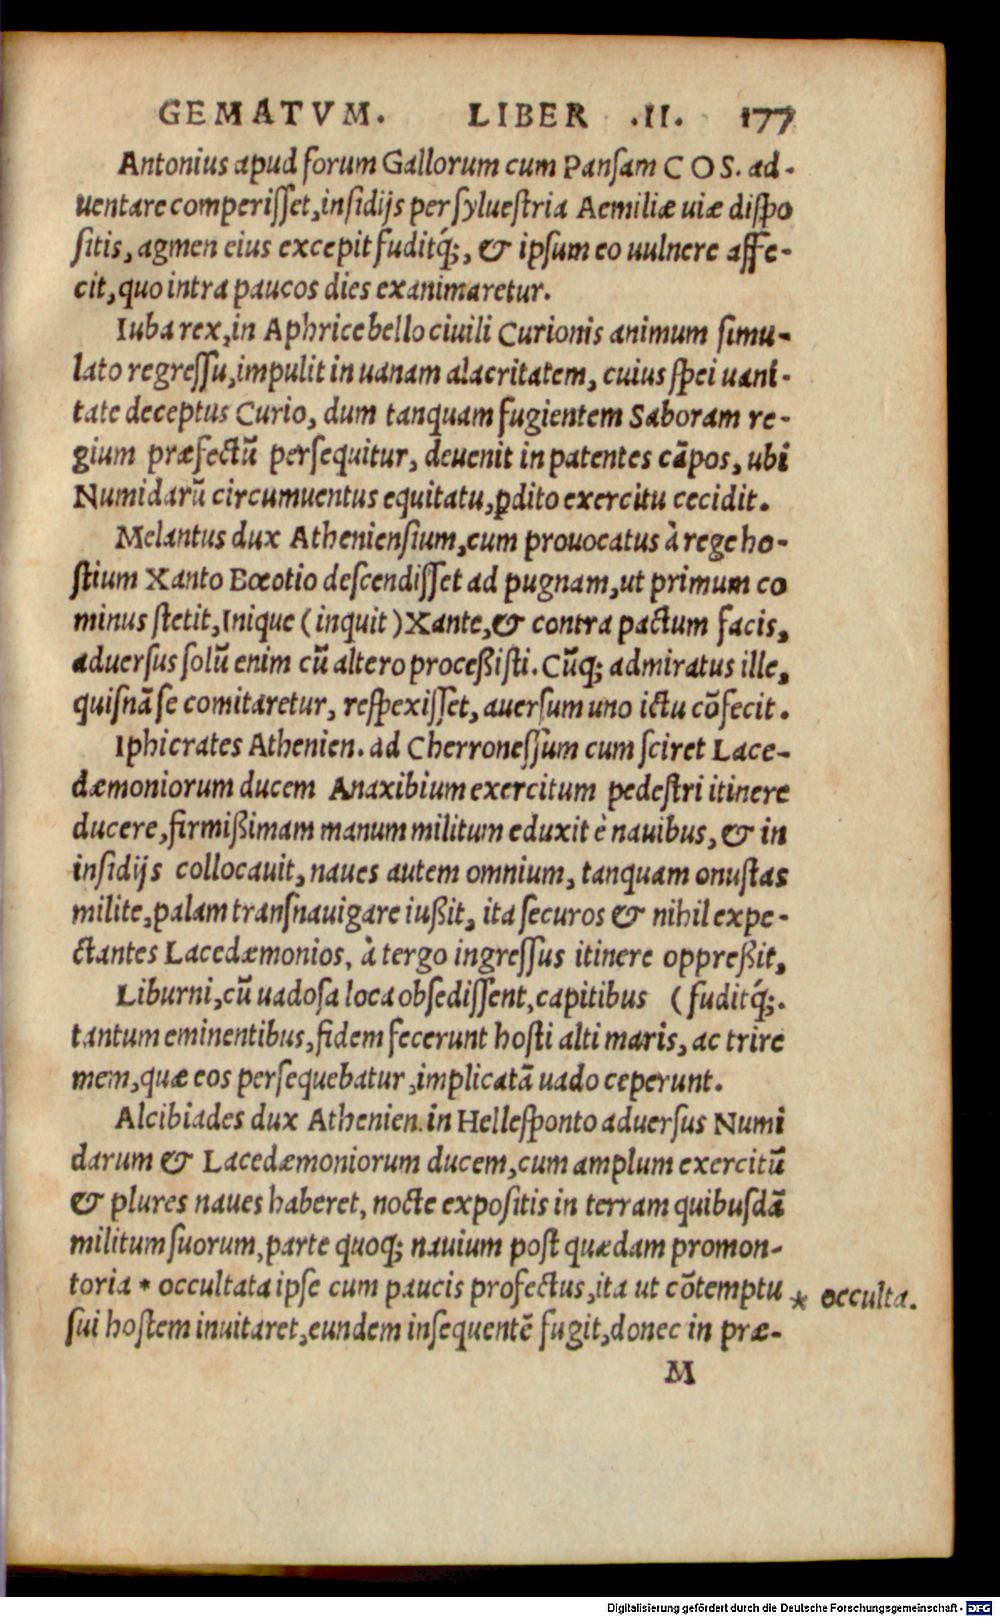 GEMATVM. LIBER .II. 177
Antonius apud forum Gallorum cum Pansam COS. ad-
uentare comperisset, insidijs per syluestria Aemiliæ uiæ dispo
sitis, agmen eius excepit fuditq́;, & ipsum eo uulnere affe-
cit, quo intra paucos dies exanimaretur.
Iuba rex, in Aphrice bello ciuili Curionis animum simu-
lato regressu, impulit in uanam alacritatem, cuius spei uani-
tate deceptus Curio, dum tanquam fugientem Saboram re-
gium præfectū persequitur, deuenit in patentes cāpos, ubi
Numidarū circumuentus equitatu, ꝑdito exercitu cecidit.
Melantus dux Atheniensium, cum prouocatus à rege ho-
stium Xanto Bœotio descendisset ad pugnam, ut primum co
minus stetit, Inique (inquit) Xante, & contra pactum facis,
aduersus solū enim cū altero processisti. Cūq; admiratus ille,
quisnā se comitaretur, respexisset, auersum uno ictu cōfecit.
Iphicrates Athenien. ad Cherronessum cum sciret Lace-
dæmoniorum ducem Anaxibium exercitum pedestri itinere
ducere, firmißimam manum militum eduxit è nauibus, & in
insidijs collocauit, naues autem omnium, tanquam onustas
milite, palam transnauigare iußit, ita securos & nihil expe-
ctantes Lacedæmonios, à tergo ingressus itinere oppreßit,
Liburni, cū uadosa loca obsedissent, capitibus (fuditq́;.
tantum eminentibus, fidem fecerunt hosti alti maris, ac trire
mem, quæ eos persequebatur, implicatā uado ceperunt.
Alcibiades dux Athenien. in Hellesponto aduersus Numi
darum & Lacedæmoniorum ducem, cum amplum exercitū
& plures naues haberet, nocte expositis in terram quibusdā
militum suorum, parte quoq; nauium post quædam promon-
toria * occultata ipse cum paucis profectus, ita ut cōtemptu * occulta.
sui hostem inuitaret, eundem insequentē fugit, donec in præ-
M
Digitalisierung gefördert durch die Deutsche Forschungsgemeinschaft - DFG